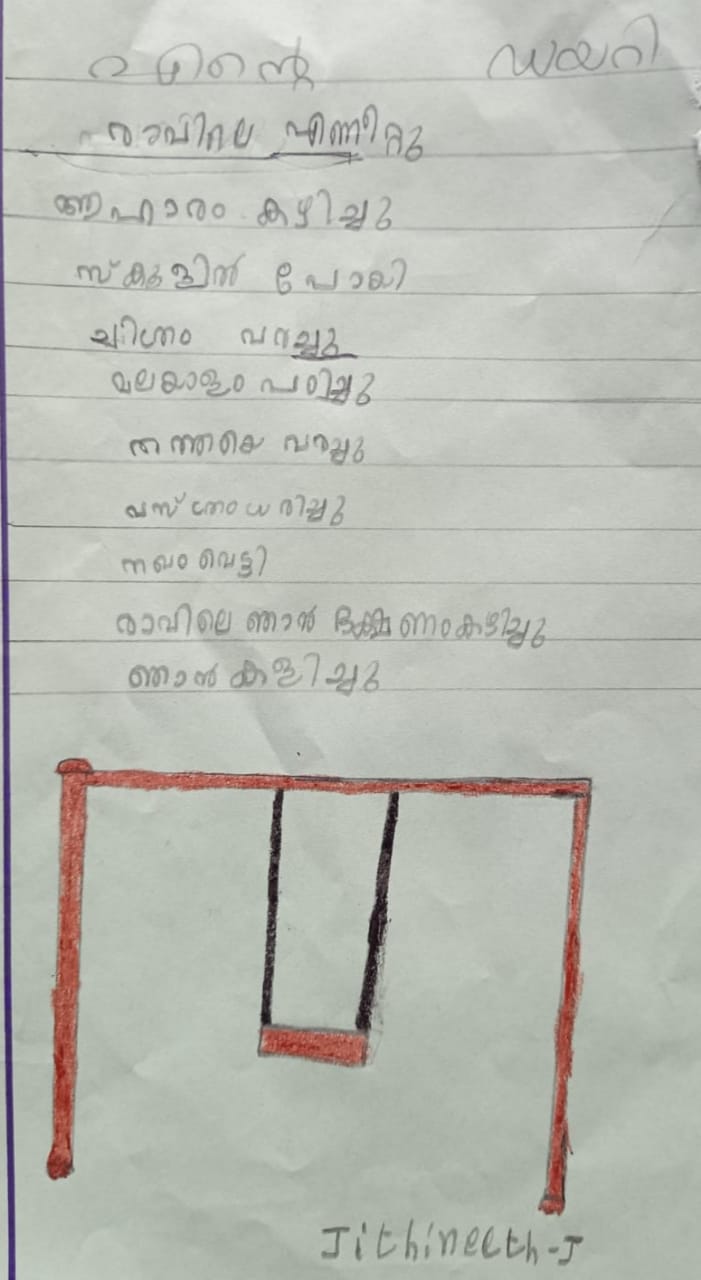 എന്റെ ഡയറി
രാവിലെ എണീറ്റു
ആഹാരം കഴിച്ചു
സ്കൂളിൽ പോയി
ചിത്രം വരച്ചു
മലയാളം പഠിച്ചു
തത്തയെ വരച്ചു
വസ്ത്രം ധരിച്ചു
നഖം വെട്ടി
രാവിലെ ഞാൻ ഭക്ഷണം കഴിച്ചു
ഞാൻ കളിച്ചു
Jithineeth-J